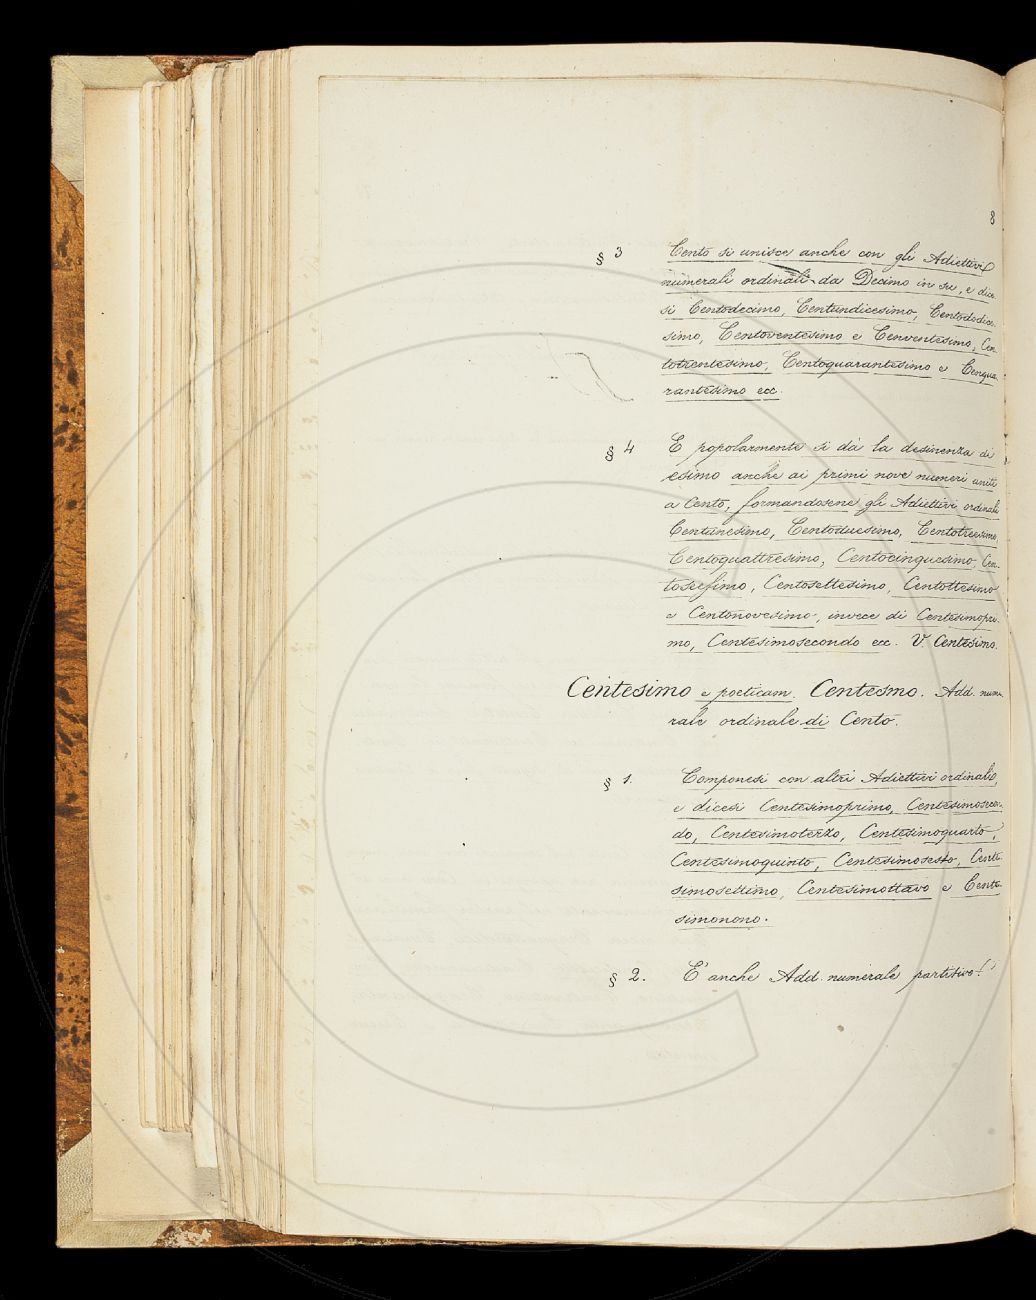 8
§ 3 Cento si unisce anche con gli Adiettivi
numerali ordinali da Decimo in su, e dice
si Centodecimo, Centundicesimo, Centododice
simo, Centoventesimo e Cenventesimo, Cen
totrentesimo, Centoquarantesimo e Cenqua
rantesimo ecc.
§ 4 E popolarmente si dà la desinenza di
esimo anche ai primi nove numeri uniti
a Cento, formandosene gli Adiettivi ordinali
Centunesimo, Centoduesimo, Centotreesimo,
Centoquattresimo, Centocinquesimo, Cen
toseesimo, Centosettesimo, Centottesimo
e Centonovesimo, invece di Centesimopri
mo, Centesimosecondo ecc. V. Centesimo.
Centesimo e poeticam. Centesmo. Add. nume
rale ordinale di Cento.
§ 1. Componesi con altri Adiettivi ordinali,
e dicesi Centesimoprimo, Centesimosecon
do, Centesimoterzo, Centesimoquarto,
Centesimoquinto, Centesimosesto, Cente
simosettimo, Centesimottavo e Cente
simonono.
§ 2. E' anche Add. numerale partitivo.